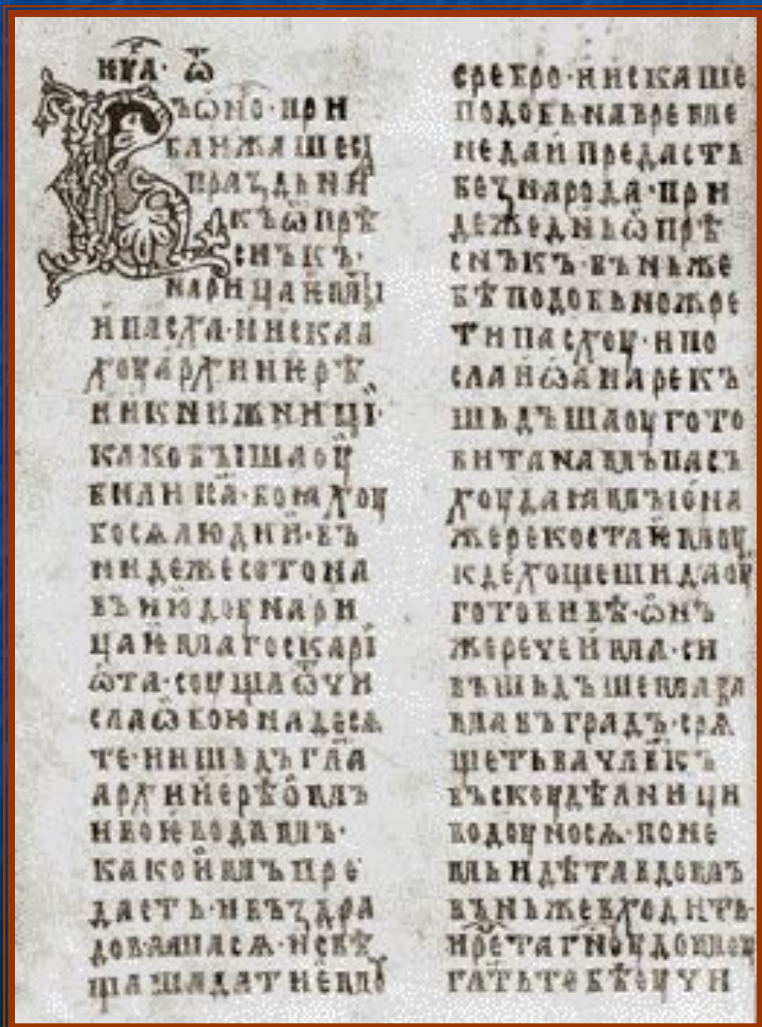 Ѿ
ВЪѠНО·ПРИ
БЛИЖАШЕСѦ
ПРАꙀДЬНИ
КЪѠПРѢ
СНЪКЪ·
НАРИЦАЙМЫ
Й ПАСХА·ИИСКАА
ХОУАРХИИЕРѢ
ИИКНИЖНИЦІ·
КАКОБЫШАОУ
БИЛИ ИСА·БОꙖХОУ
БОСѦЛЮДИЙ·ВЪ
НИДЕЖЕСОТОНА
ВЪИЮДОУНАРИ
ЦАЙМАГОСКАРІ
ѠТА·СОУЩАѾЧИ
СЛАѠБОЮНАДЕСѦ
ТЕ·ИИШЬДЪГЛ҃А
АРХИИЕРѢОМЪ
ИВОЙВОДАМЪ·
КАКОЙМЪПРЕ
ДАСТЬ·ИВЪꙀДРА
ДОВАШАСѦ·ИСВѢ
ЩАШАДАТИЕМОУ
СРЕБРО·ИИСКАШЕ
ПОДОБЬНАВРЕМЕ
НЕДАЙПРЕДАСТЬ
БЕꙀНАРОДА·ПРИ
ДЕЖЕДНЬѠПРѢ
СНЪКЪ·ВЪНЬЖЕ
БѢПОДОБЬНОЖРЕ
ТИПАСХОУ·ИПО
СЛАИѠАНАРЕКЪ
ШЬДЪШАОУГОТО
ВИТАНАМЪПАСЪ
ХОУДАꙖМЪІОНА
ЖЕРЕКОСТАЙМОУ
КДЕХОЩЕШИДАОУ
ГОТОВИВѢ·ѠНЪ
ЖЕРЕЧЕЙМА·СИ
ВЪШЬДЪШЕМАВА
МАВЪГРАДЪ·СРѦ
ЩЕТЬВАЧЛВ҃КЪ
ВЪСКОУДѢЛНИЦИ
ВОДОУНОСѦ·ПОНЕ
МЬИДѢТАВДОМЪ
ВЪНЬЖЕВХОДИТЬ·
ИРЕ҃ТАГН҃ОУДОМОУ
ГЛ҃АТЬТЕБѢОУЧИ